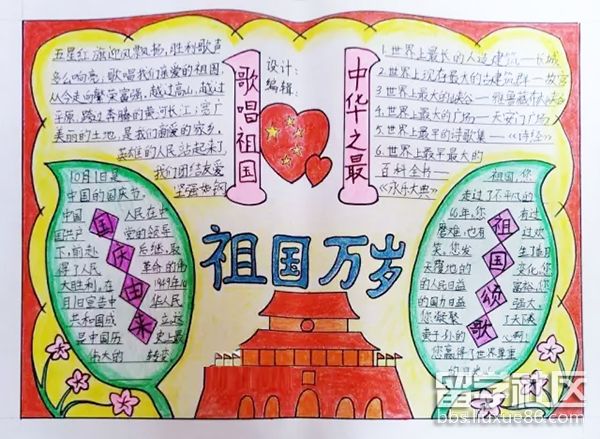 五星红旗迎风飘扬,胜利歌声
多么响亮,歌唱我们亲爱的祖国,
从今走向繁荣富强,越过高山,越过
平原,跨过奔腾的黄河长江;宽广
美丽的土地,是我们亲爱的家乡,
英雄的人民站起来了
我们团结友爱
坚强如钢
歌唱祖国
设计:
编辑:
中华之最
1.世界上最长的人造建筑——长城
2.世界上现存最大的古建筑群——故宫
3.世界上最大的峡谷——雅鲁藏布大峡谷
4.世界上最大的广场——天安门广场
5.世界上最早的诗歌集——《诗经》
6.世界上最早最大的
百科全书——
《永乐大典》
祖国万岁
10月1日是
中国的国庆节,
中国 人民在中
国共产 党的领导
下,前赴 后继,取
得了人民 革命的伟
大胜利,在 1949年10
月1日宣告中 华人民
共和国成 立,这
是中国历 史上最
伟大的 转变
国庆由来
祖国,您
走过了不平凡的
66年,您 有过
磨难,也有 过欢
笑,您发 生了日月
天隆地的 变化,您
的人民日益 富裕,您
的国力日益 强大,
您凝聚 了天下炎
黄子孙的 心啊!
您赢得了世界尊重
的目光
祖国颂歌
留学社区
bbs.liuxue86.com